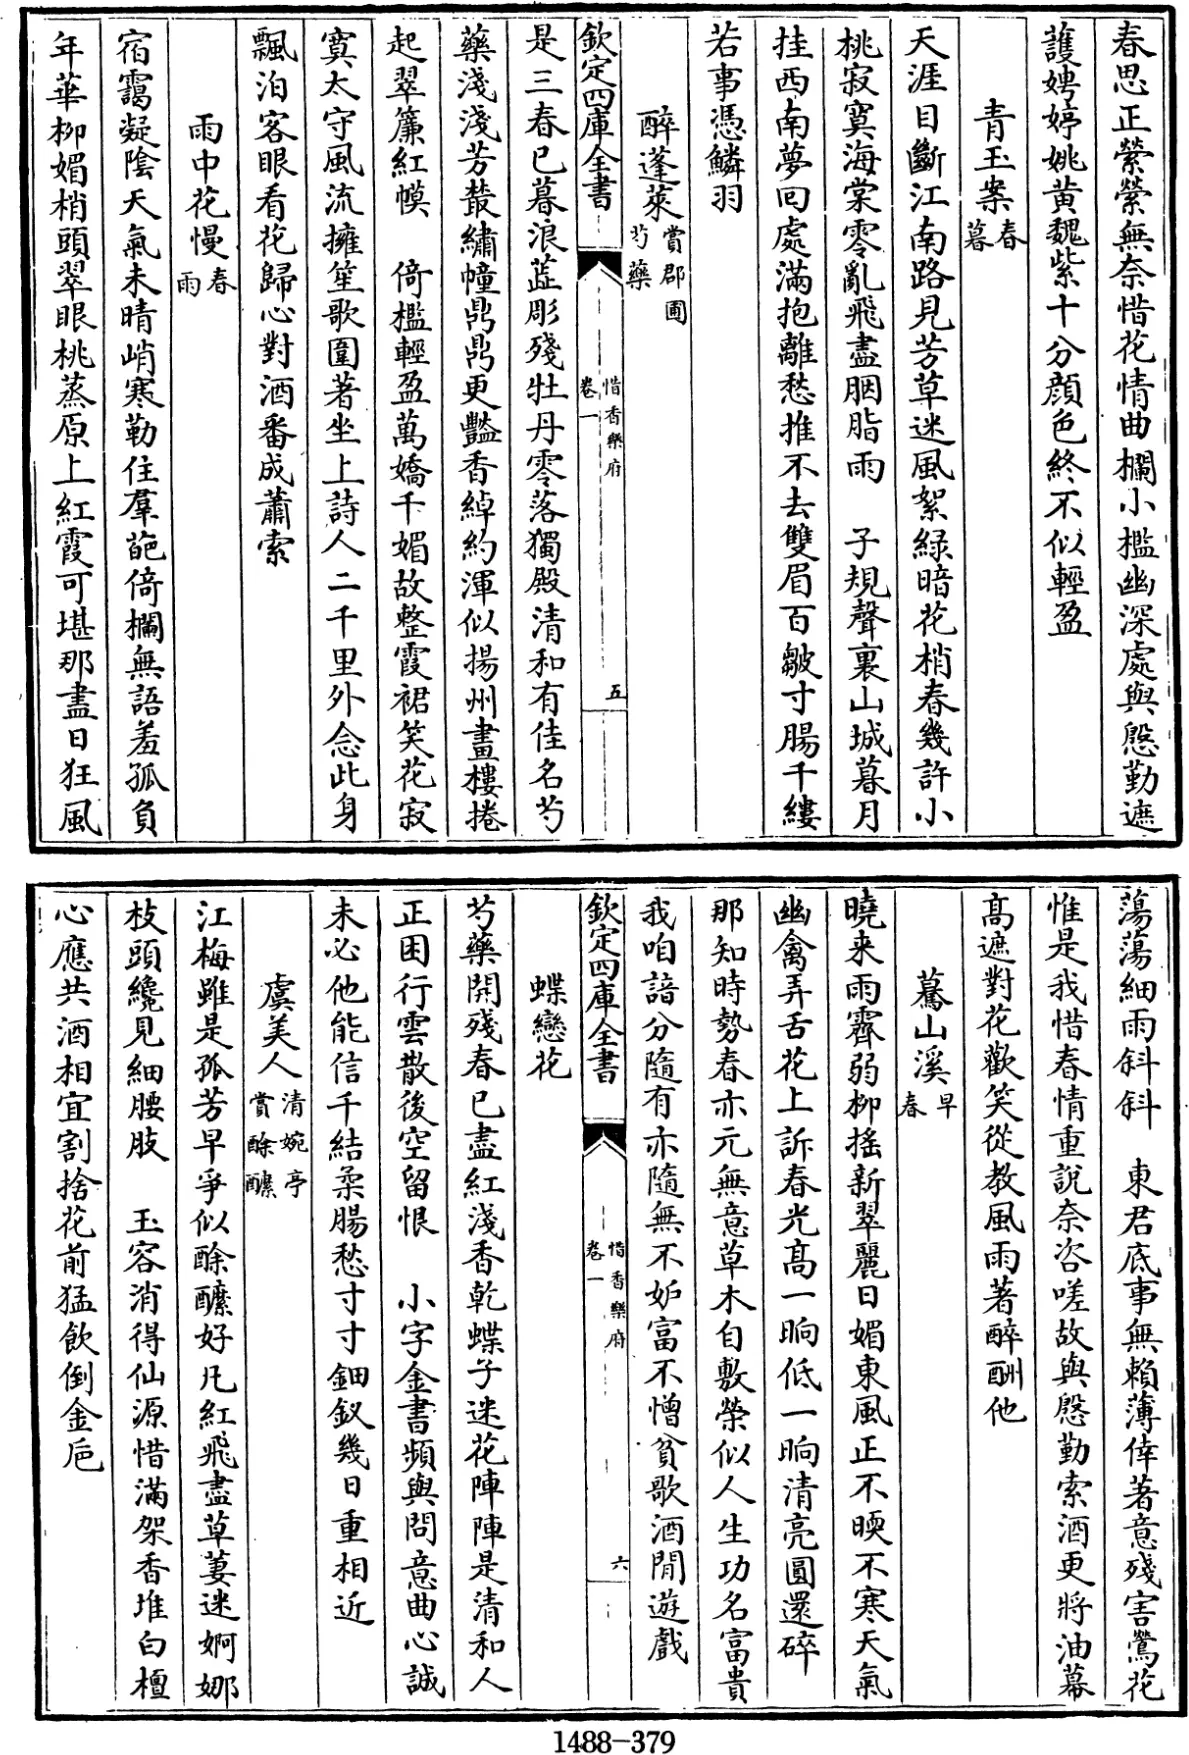 春思正縈縈無奈惜花情曲欄小檻幽深處與慇勤遮
護娉婷姚黄魏紫十分顔色終不似輕盈
青玉案春暮
天涯目斷江南路見芳草迷風絮緑暗花梢春幾許小
桃寂寞海棠零亂飛盡胭脂雨 子規聲裏山城暮月
挂西南夢回處滿抱離愁推不去雙眉百皺寸腸千縷
若事憑鱗羽
醉蓬萊賞郡圃芍藥
欽定四庫全書
惜香樂府
卷一
五
是三春已暮浪蕋彫殘牡丹零落獨殿清和有佳名芍
藥淺淺芳叢繡幢鼎鼎更豔香綽約渾似揚州畫樓捲
起翠簾紅幙 倚檻輕盈萬嬌千媚故整霞裙笑花寂
寞太守風流擁笙歌圍著坐上詩人二千里外念此身
飄泊客眼看花歸心對酒番成蕭索
雨中花慢春雨
宿靄凝陰天氣未晴峭寒勒住羣葩倚欄無語羞孤負
年華柳媚梢頭翠眼桃蒸原上紅霞可堪那盡日狂風
蕩蕩細雨斜斜 東君底事無賴薄倖著意殘害鶯花
惟是我惜春情重説奈咨嗟故與慇勤索酒更將油幕
髙遮對花歡笑從教風雨著醉酬他
驀山溪早春
曉来雨霽弱柳摇新翠麗日媚東風正不暎不寒天氣
幽禽弄舌花上訴春光髙一晌低一晌清亮圓還碎
那知時勢春亦元無意草木自敷榮似人生功名富貴
我咱諳分隨有亦隨無不妒富不憎貧歌酒閒遊戲
欽定四庫全書
惜香樂府
卷一
六
蝶戀花
芍藥開殘春已盡紅淺香乾蝶子迷花陣陣是清和人
正困行雲散後空留恨 小字金書頻與問意曲心誠
未必他能信千結柔腸愁寸寸鈿釵幾日重相近
虞美人清婉亭賞酴醿
江梅雖是孤芳早爭似酴醿好凡紅飛盡草萋迷婀娜
枝頭纔見細腰肢 玉容消得仙源惜滿架香堆白檀
心應共酒相宜割捨花前猛飲倒金巵
1488-379